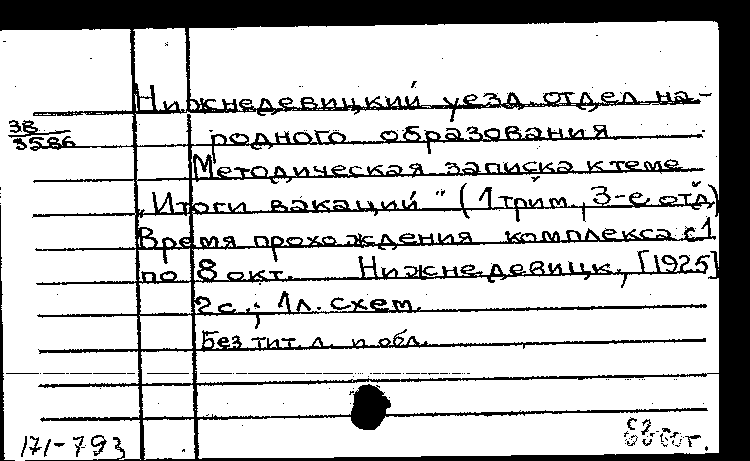 Нижнедевицкий уезд. отдел на-
родного образования
зв
3586
Методическая записка к теме
„Итоги вакаций" (1 трим., 3-е отд)
Время прохождения комплекса с 1
по 8 окт. Нижнедевицк, [1925]
2 с.; 1 л. схем.
Без тит. л. и обл.
171-793